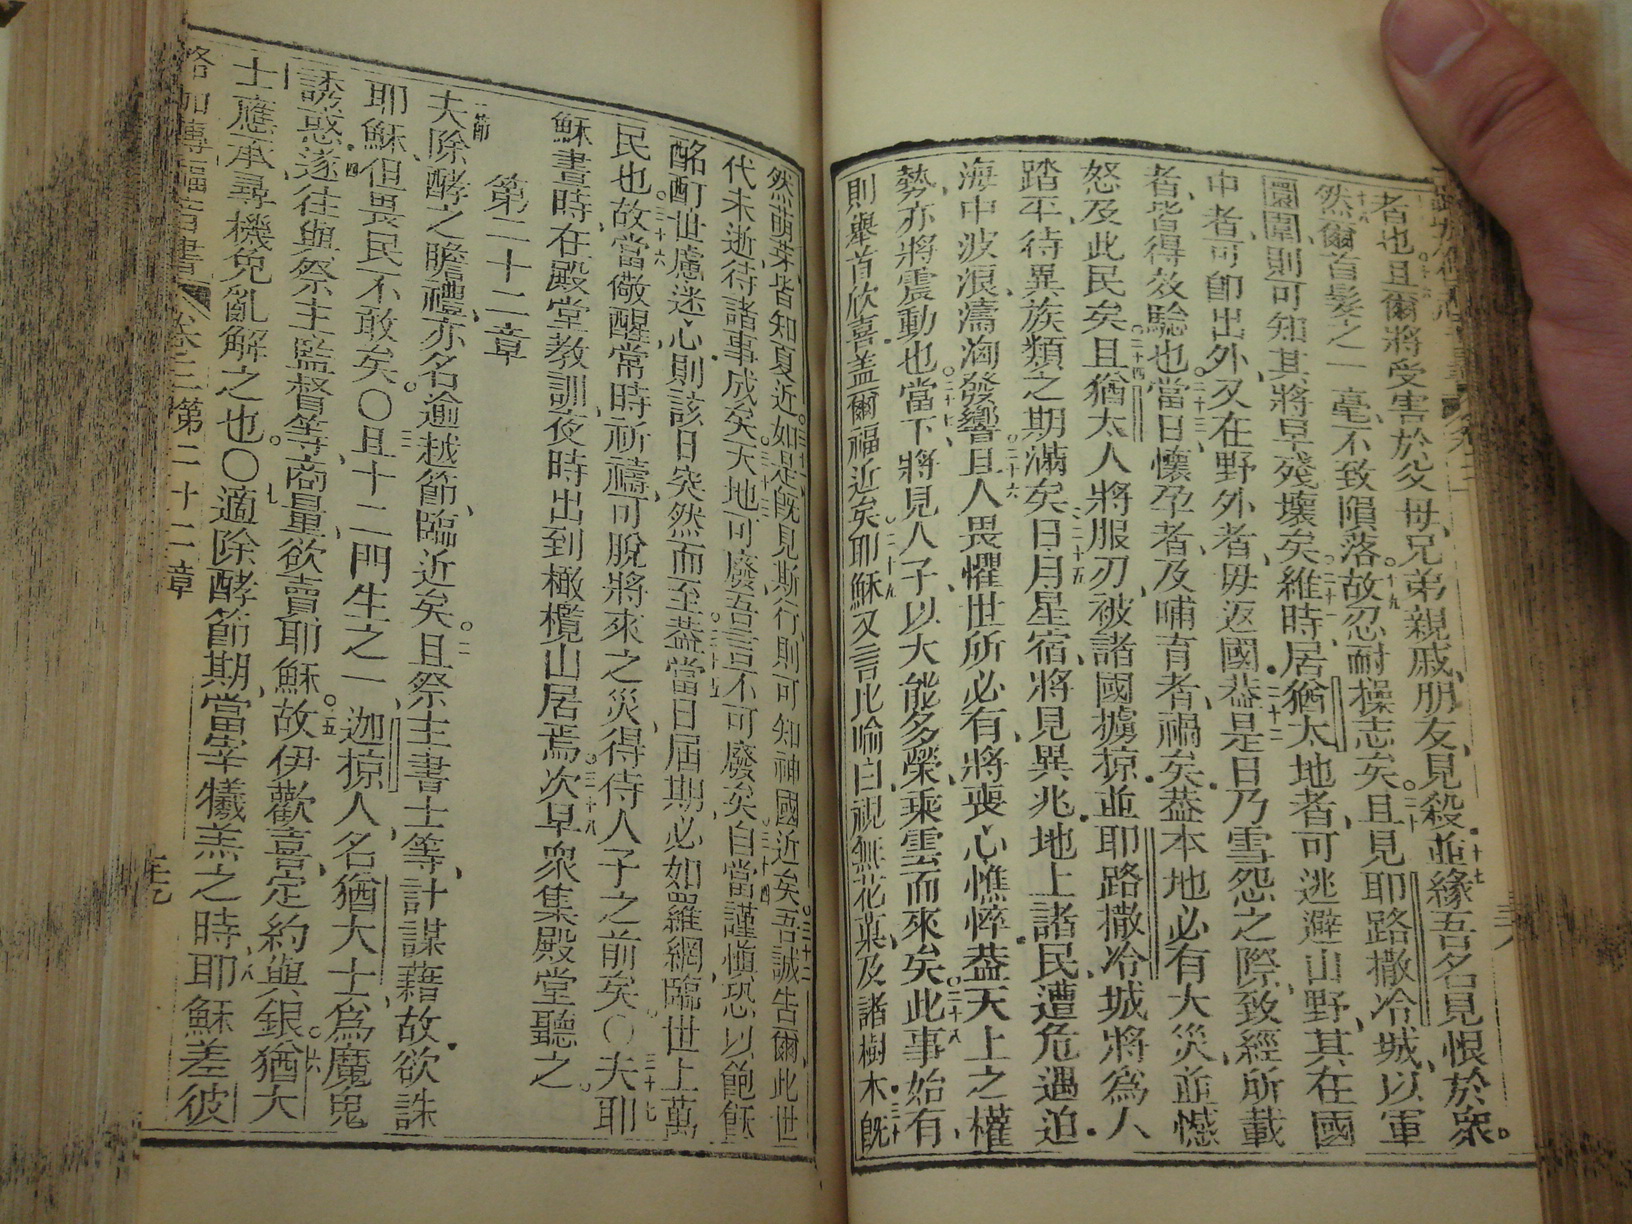 者也且爾將受害於父母、兄弟親戚、朋友、見殺。十七並緣吾名見恨於衆。
十八然爾首髮之一毫、不致隕落。十九故忍耐操志矣。二十且見耶路撒冷城、以軍
圜圍、則可知其將早殘壞矣。二十一維時、居猶太地者、可逃避山野、其在國
中者、可卽出外、又在野外者、毋返國。二十二葢是日乃雪怨之際、致經所載
者、皆得效驗也。二十三當日懷孕者、及哺育者、禍矣。葢本地必有大災、並憾
怒及此民矣。二十四且猶太人將服刃、被諸國擄掠。並耶路撒冷城將爲人
踏平、待異族類之期滿矣。二十五日月星宿、將見異兆。地上諸民、遭危遇迫。
海中波浪、濤洶發響。二十六且人畏懼世所必有、將喪心憔悴。葢天上之權
勢、亦將震動也。二十七當下、將見人子、以大能多榮、乘雲而來矣。二十八此事始有、
則舉首欣喜。葢爾福近矣。二十九耶穌又言比喻曰、視無花菓、及諸樹木。三十旣
然萌芽、皆知夏近。三十一如是旣見斯行、則可知神國近矣。三十二吾誠告爾、此世
代未逝、待諸事成矣。三十三天地可廢、吾言不可廢矣。三十四自當謹愼、恐以飽飫
酩酊世慮迷心、則該日突然而至。三十五葢當日屆期、必如羅網、臨世上萬
民也。三十六故當儆醒、常時祈禱、可脫將來之災、得侍人子之前矣。〇三十七夫耶
穌晝時、在殿堂教訓、夜時出到橄欖山居焉。三十八次早衆集殿堂聽之。
第二十二章
一節夫除酵之瞻禮、亦名逾越節、臨近矣。二且祭主書士等、計謀藉故欲誅
耶穌、但畏民不敢矣。〇三且十二門生之一、迦掠人、名猶大士、爲魔鬼
誘惑。四遂往與祭主監督等、商量、欲賣耶穌。五故伊歡喜、定約與銀。六猶大
士應承、尋機免亂解之也。〇七適除酵節期、當宰犧羔之時、八耶穌差彼
路加傳福音書 卷三 第二十二章